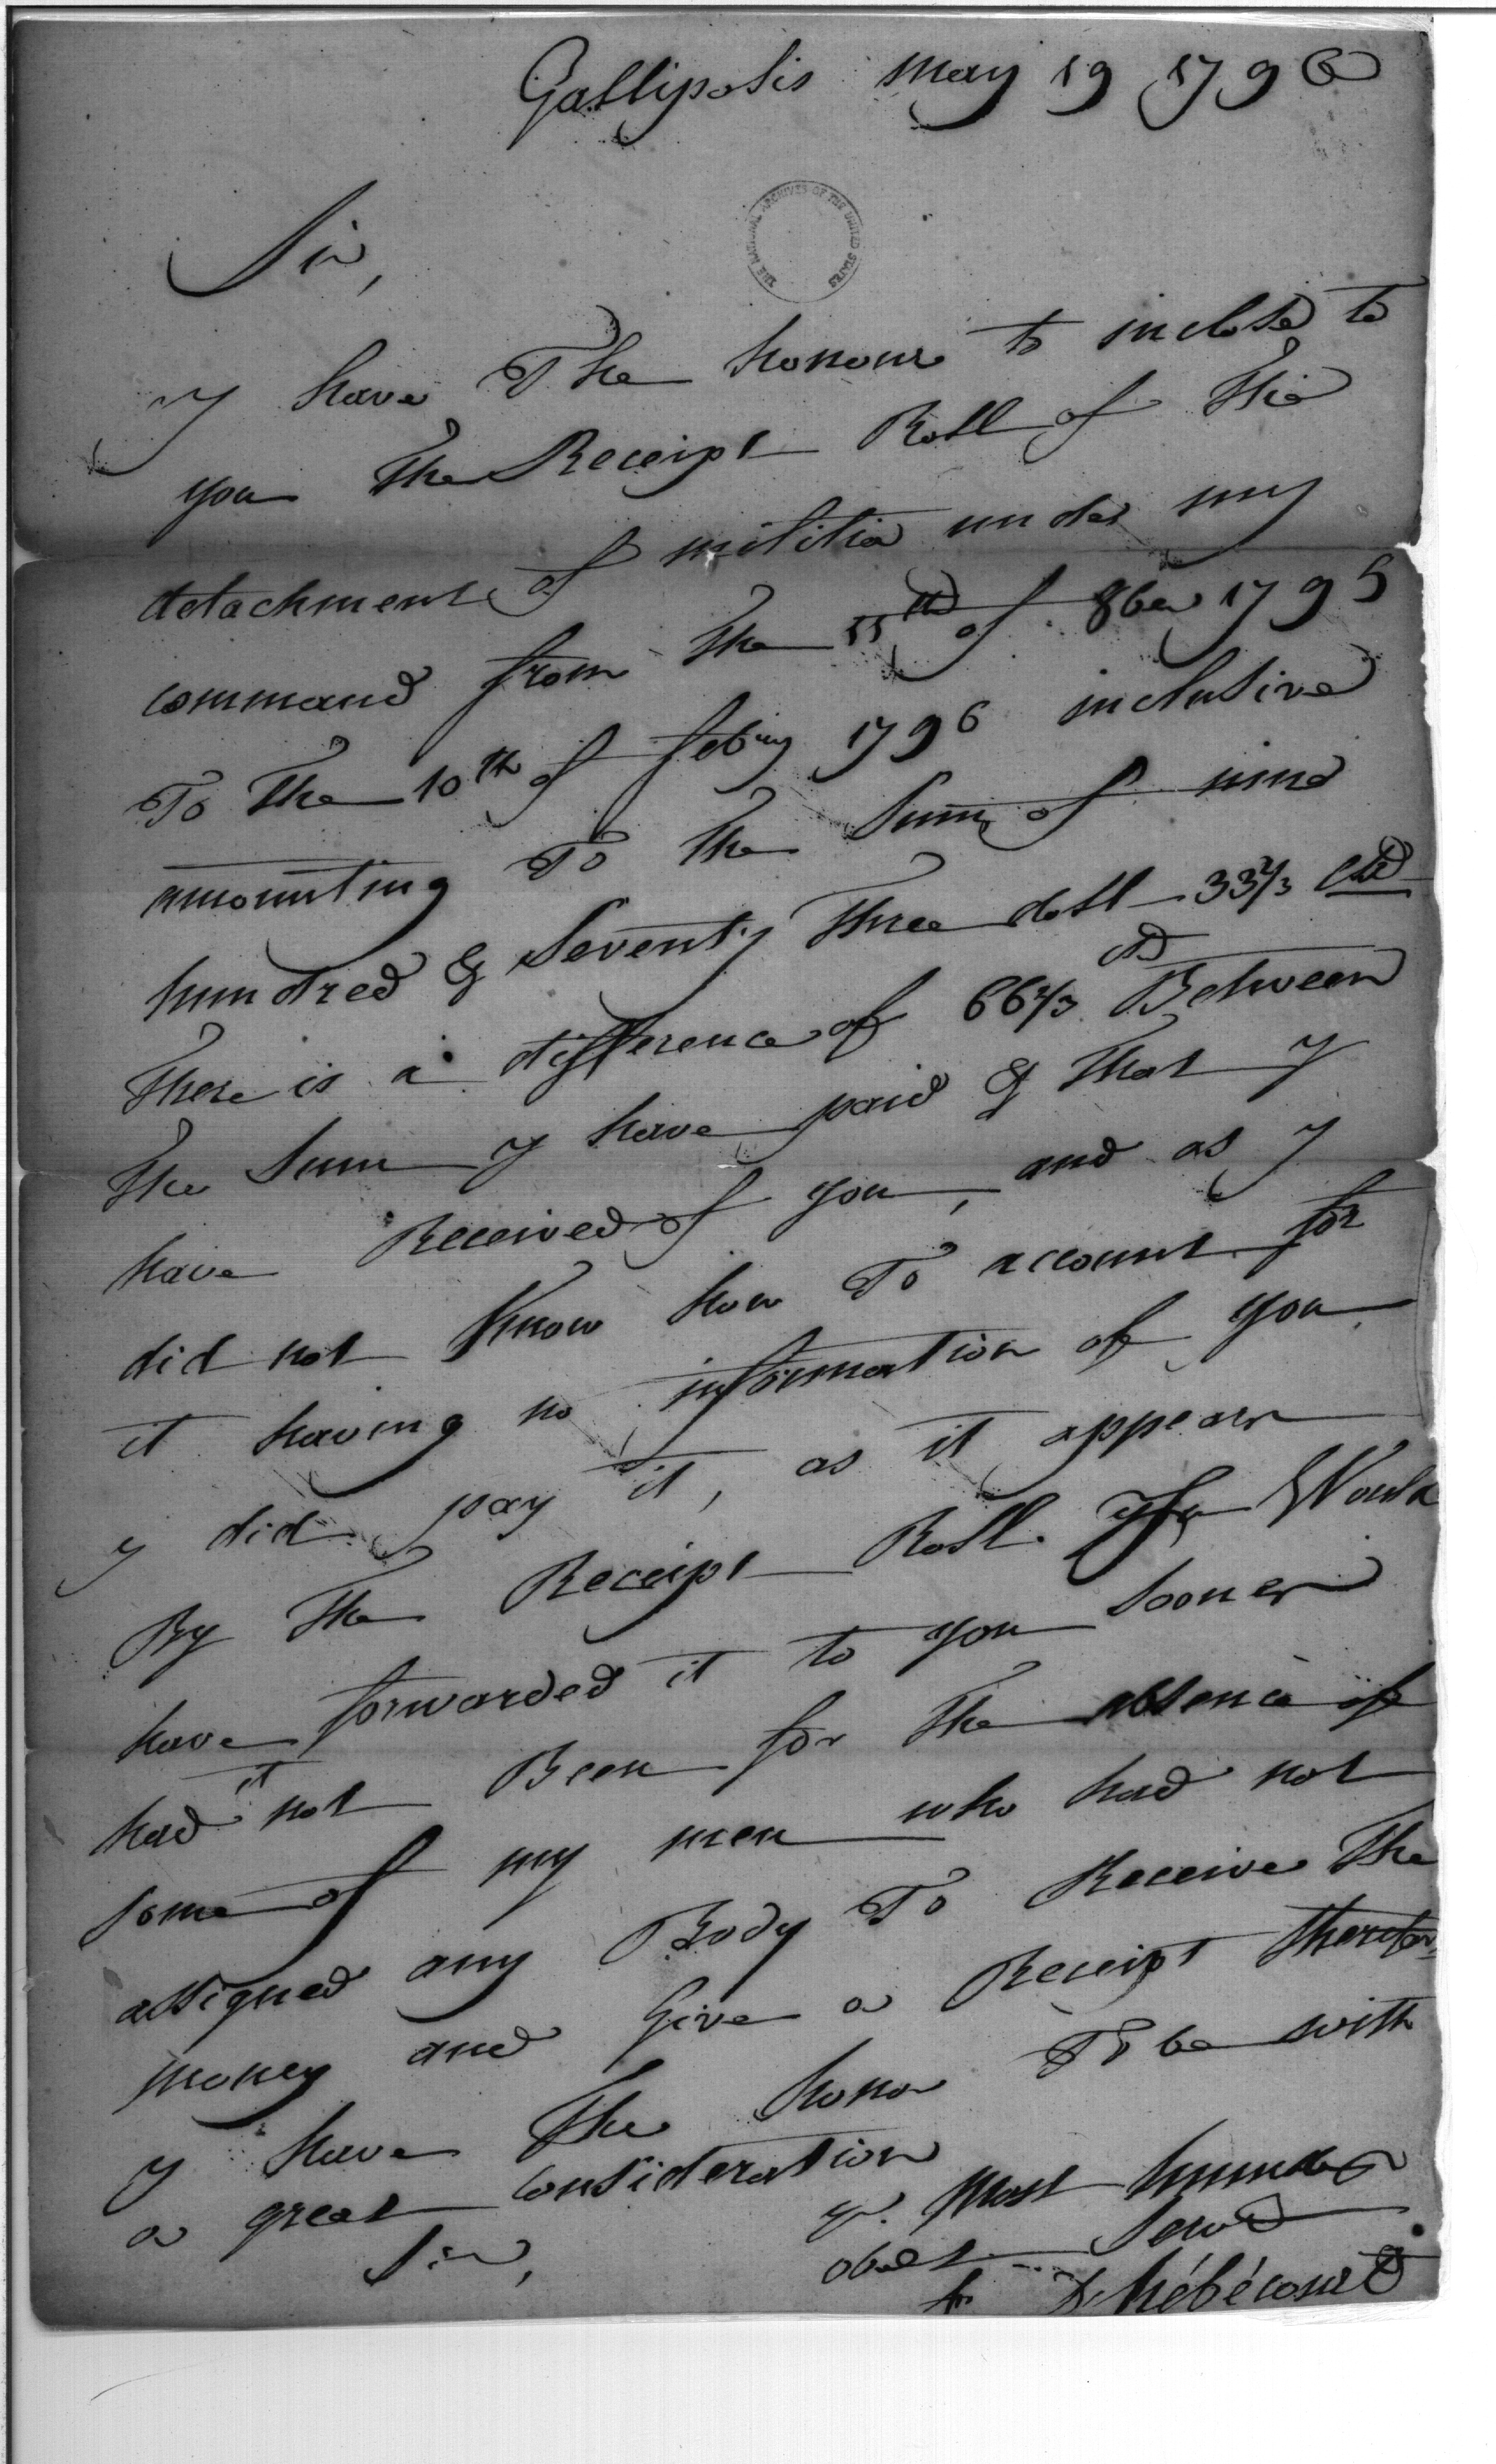 Gallipolis may 19 1796
THE NATIONAL ARCHIVES OF THE UNITED STATES
Sir,
y have The honour to inclose to
you The Receipt Roll of The
detachment of militia under my
command from The 11th of 8ber 1795
To The 10th of feb'ry 1796 inclusive
amounting To The Sum of nine
hundred & Seventy Three doll 33⅓ cts
There is a difference of 66⅔ cts Between
The Sum y have paid & That y
have Received of you, and as y
did not Know how To account for
it having no information of you
y did pay it, as it appears
By The Receipt Roll. y Would
have forwarded it to you sooner
had it not Been for The absence of
some of my men who had not
assigned any Body To Receive The
money and Give a Receipt Therefor,
y have The honor To be with
a great consideration
Sir,
yr. Most humble
obedt Servt
f. D'hébécourt